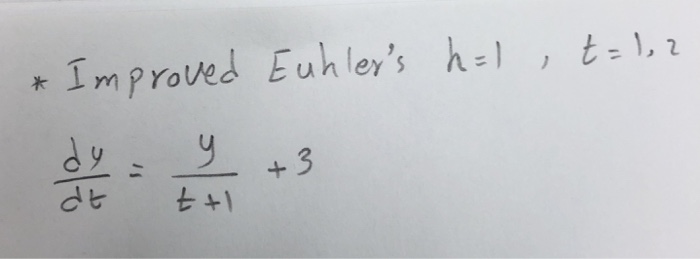 * Improved Euhler's h=1 , t=1,2
dy/dt = y/(t+1) + 3